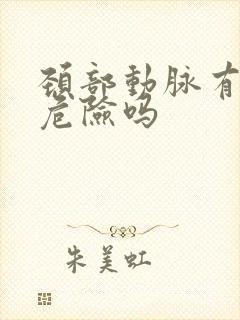 頚部動脉有
危險吗
朱美虹